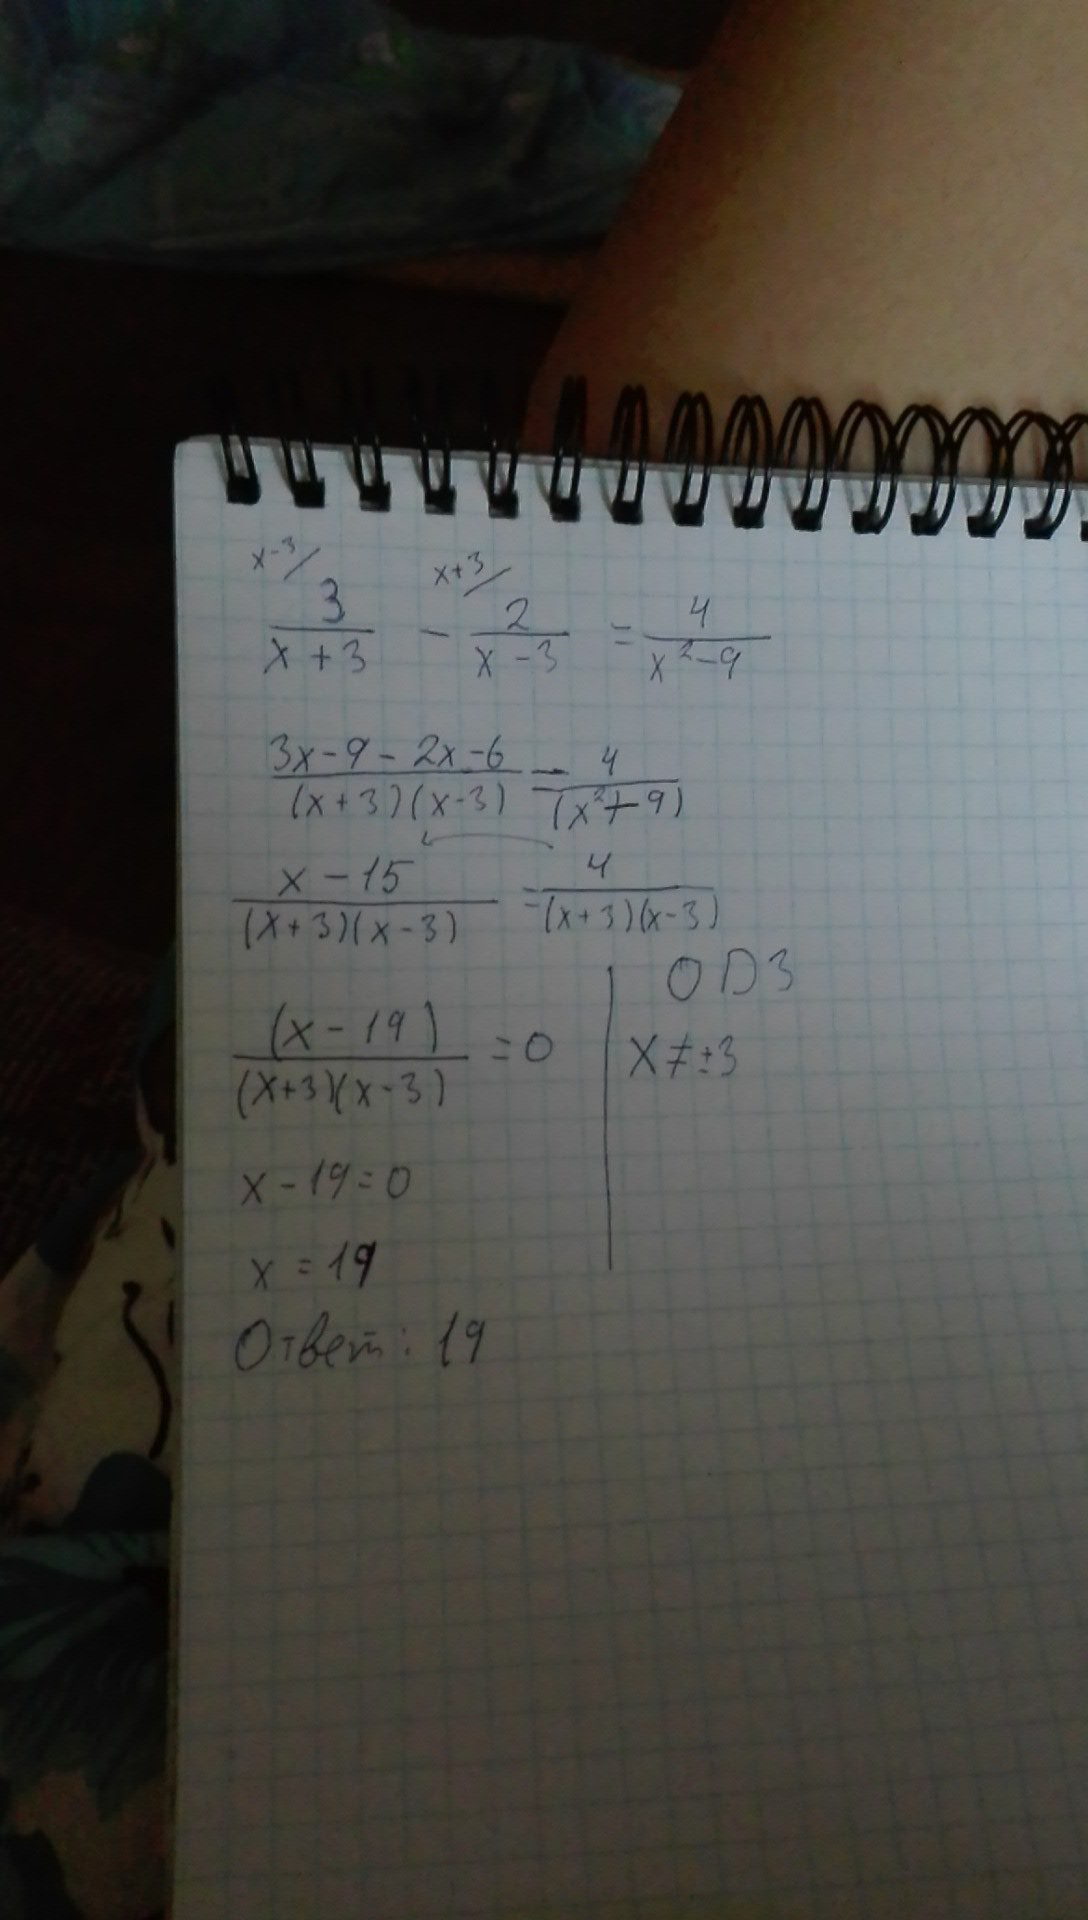 x-3/ x+3/
3/(x+3) - 2/(x-3) = 4/(x²-9)
(3x-9-2x-6)/((x+3)(x-3)) = 4/(x²-9)
(x-15)/((x+3)(x-3)) = 4/((x+3)(x-3))
ОDЗ
(x-19)/((x+3)(x-3)) = 0
x≠±3
x-19=0
x=19
Ответ: 19